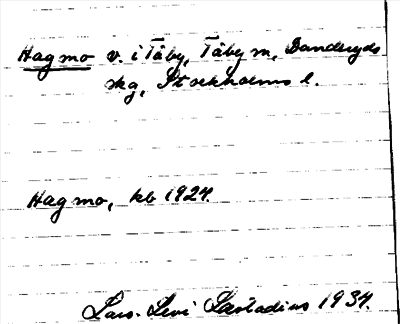 Hagmo v. i Täby, Täby sn, Danderyds
skg, Stockholms l.
Hagmo, kb 1924.
Lars-Levi Læstadius 1934.